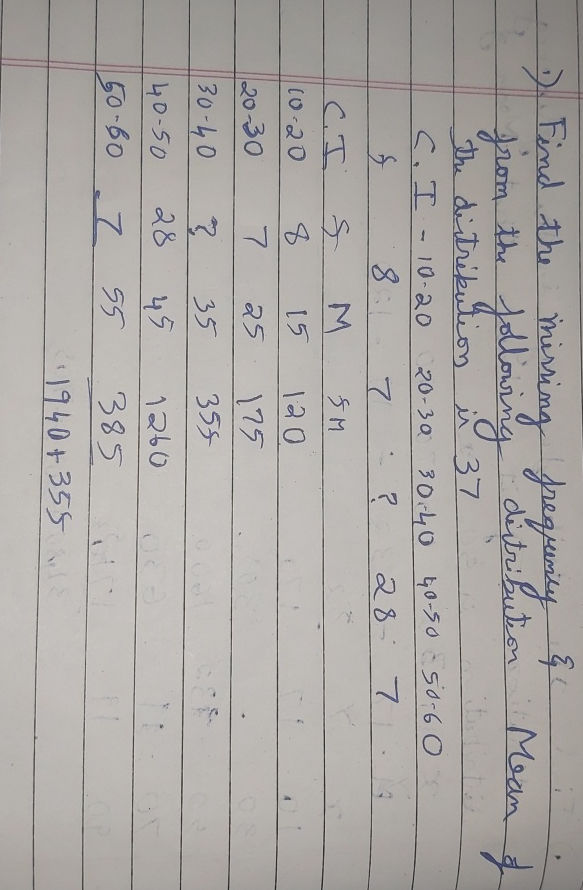 1) Find the missing frequency &
from the following distribution Mean of
the distribution is 37
C.I - 10-20 20-30 30-40 40-50 50-60
f 8 7 ? 28 7
C.I f M fM
10-20 8 15 120
20-30 7 25 175
30-40 ? 35 35f
40-50 28 45 1260
50-60 7 55 385
1940+35f